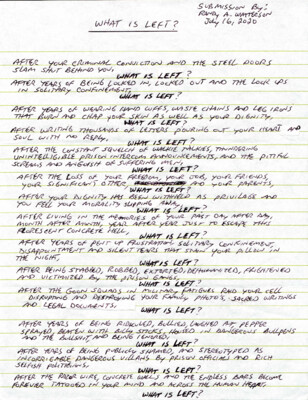 SUBMISSION By:
RANDY A. WATTERSON
July 16, 2020
WHAT IS LEFT?
AFTER YOUR CRIMINAL CONVICTION AND THE STEEL DOORS
SLAM SHUT BEHIND YOU,
WHAT IS LEFT?
AFTER YEARS OF BEING LOCKED IN, LOCKED OUT AND THE LOCK UPS
IN SOLITARY CONFINEMENT,
WHAT IS LEFT?
AFTER YEARS OF WEARING HAND CUFFS, WAISTE CHAINS AND LEG IRONS
THAT BURN AND CHAP YOUR SKIN AS WELL AS YOUR DIGNITY,
WHAT IS LEFT?
AFTER WRITING THOUSANDS OF LETTERS POURING OUT YOUR HEART AND
SOUL WITH NO REPLY,
WHAT IS LEFT?
AFTER THE CONSTANT SQUELCH OF WALKIE TALKIES, THUNDERING
UNINTELLIGIBLE PRISON INTERCOM ANNOUNCEMENTS, AND THE PITIFUL
SCREAMS AND OF SUFFERING MEN,
WHAT IS LEFT?
AFTER THE LOSS OF YOUR FREEDOM, YOUR JOB, YOUR FRIENDS,
YOUR SIGNIFICANT OTHER, AND YOUR PARENTS,
WHAT IS LEFT?
AFTER YOUR DIGNITY HAS BEEN WITHERED AS PRIVILAGE AND
YOU FEEL YOUR HUMANITY SLIPPING AWAY,
WHAT IS LEFT?
AFTER LIVING IN THE MEMORIES OF YOUR PAST DAY AFTER DAY,
MONTH AFTER MONTH, YEAR AFTER YEAR JUST TO ESCAPE THIS
FLORESCENT CONCRETE HELL,
WHAT IS LEFT?
AFTER YEARS OF PENT UP FRUSTRATION, SOLITARY CONFINEMENT,
DISAPPOINTMENT AND SILENT TEARS THAT STAIN YOUR PILLOW IN
THE NIGHT,
WHAT IS LEFT?
AFTER BEING STABBED, ROBBED, EXTORTED, DEHUMANIZED, FRIGHTENED
AND VICTIMIZED BY THE PRISON GANGS,
WHAT IS LEFT?
AFTER THE GOON SQUADS IN THIS RAID YOUR CELL
DISRUPTING AND DESTROYING YOUR FAMILY PHOTO'S, SACRED WRITINGS
AND LEGAL DOCUMENTS,
WHAT IS LEFT?
AFTER YEARS OF BEING RIDICULED, BULLIED, LAUGHED AT, PEPPER
SPRAYED, BEATEN WITH STICKS, HOUSED IN DANGEROUS BULLPENS
AND THE BULLSHIT, AND BEING IGNORED,
WHAT IS LEFT?
AFTER YEARS OF BEING PUBLICLY SHAMED, AND STEREOTYPED AS
INCORRIGIBLE DANGEROUS VILLAINS BY PRISON OFFICIALS AND RICH
SELFISH POLITICIANS,
WHAT IS LEFT?
AFTER THE RAZOR WIRE, CONCRETE WALLS, AND THE ENDLESS BARS BECOME
FOREVER TATTOOED IN YOUR MIND AND ACROSS THE HUMAN HEART,
WHAT IS LEFT?